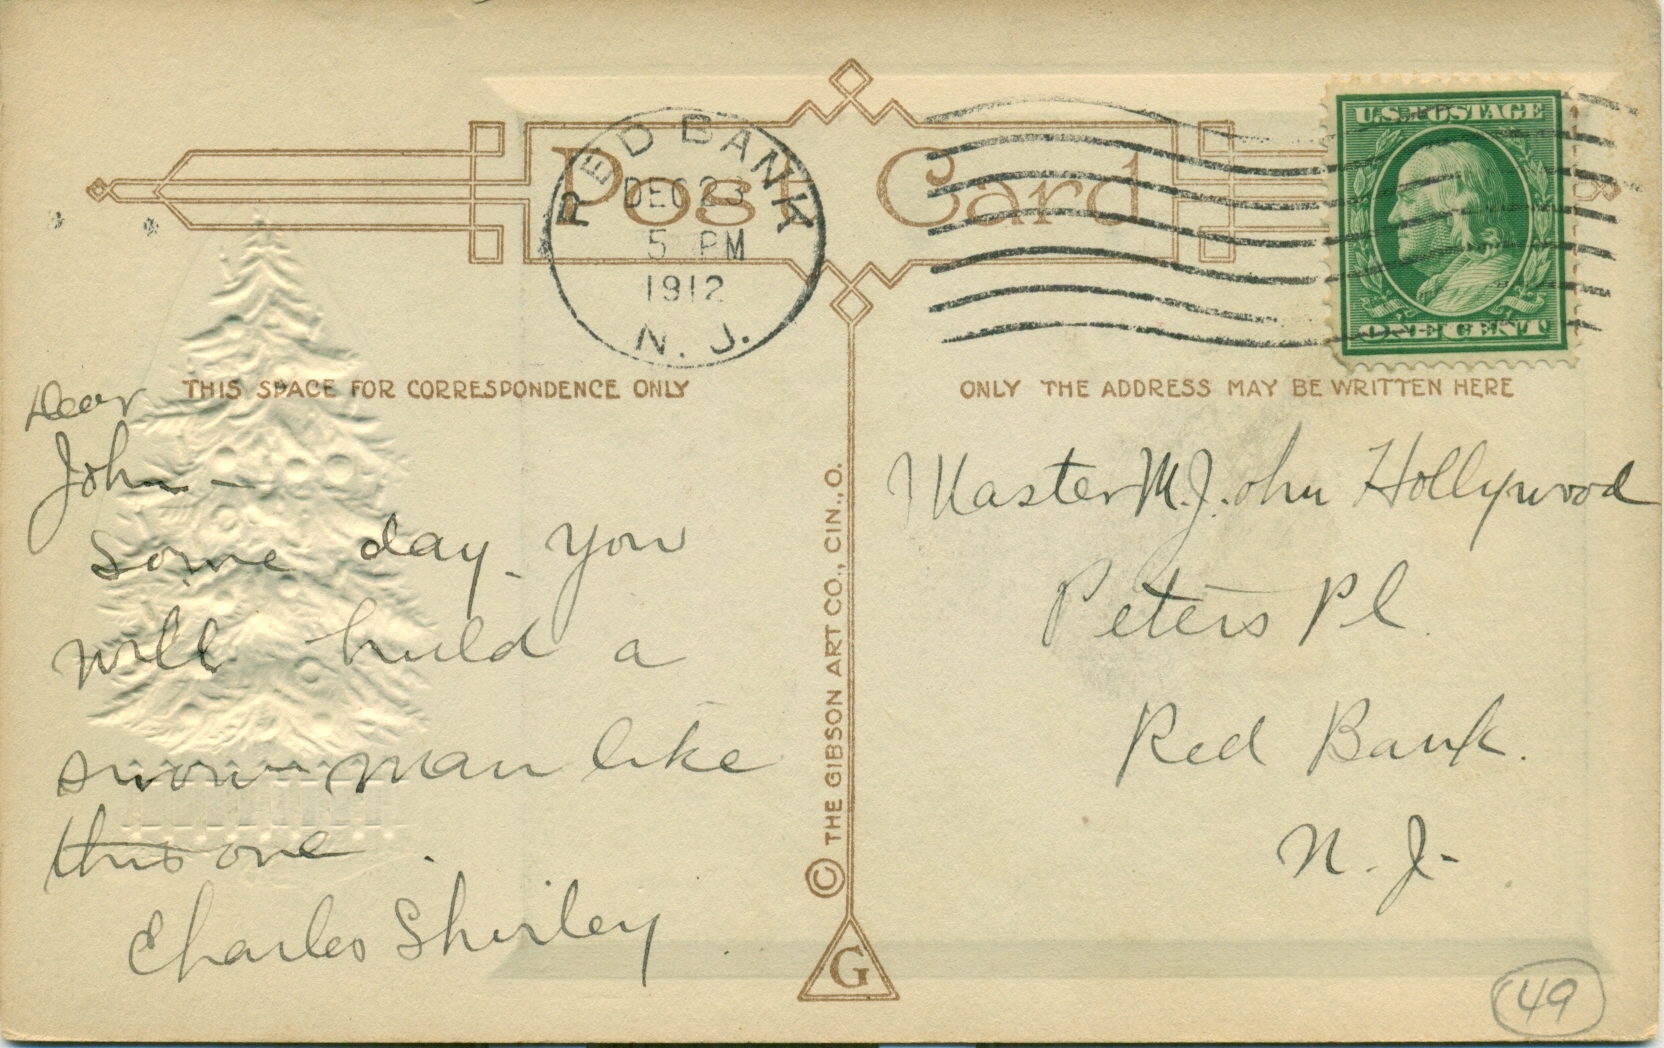 Post Card
RED BANK
DEC 23
5 PM
1912
N. J.
U.S. POSTAGE
ONE CENT
THIS SPACE FOR CORRESPONDENCE ONLY
Dear
John -
Some day you
will build a
snow man like
this one.
Charles Shirley
© THE GIBSON ART CO., CIN., O.
G
ONLY THE ADDRESS MAY BE WRITTEN HERE
Master M. John Hollywood
Peters Pl.
Red Bank.
N. J.
49